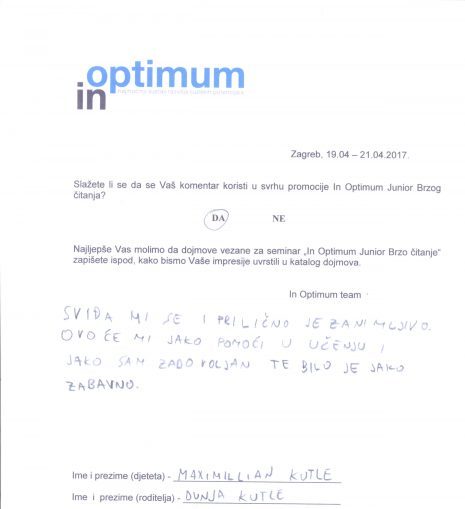 optimum
in
Zagreb, 19.04 – 21.04.2017.
Slažete li se da se Vaš komentar koristi u svrhu promocije In Optimum Junior Brzog
čitanja?
DA NE
Najljepše Vas molimo da dojmove vezane za seminar „In Optimum Junior Brzo čitanje“
zapišete ispod, kako bismo Vaše impresije uvrstili u katalog dojmova.
In Optimum team
SVIĐA MI SE I PRILIČNO JE ZANIMLJIVO.
OVO ĆE MI JAKO POMOĆI U UČENJU I
JAKO SAM ZADOVOLJAN TE BILO JE JAKO
ZABAVNO.
Ime i prezime (djeteta) - MAXIMILLIAN KUTLE
Ime i prezime (roditelja) - DUNJA KUTLE